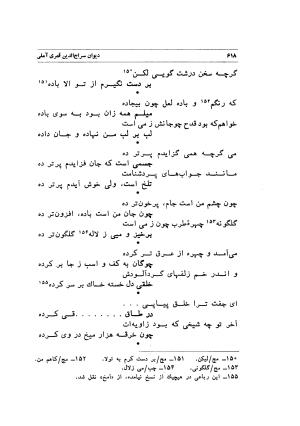 ۶۱۸ دیوان سراج‌الدین قمری آملی
گرچه سخن درشت گویی لکن۱۵۰
بر دست نگیرم از تو الا باده۱۵۱
*
که رنگم۱۵۲ و باده لعل چون بیجاده
میلم همه زان بود به سوی باده
خواهم‌که بود قدح چوجانش ز می است
لب بر لب من نهاده و جان داده
*
می گرچه همی گزایدم پرتر ده
جسمی است که جان فزایدم پرتر ده
مانند جواب‌های پردشنامت
تلخ است، ولی خوش آیدم پرتر ده
*
چون چشم من است جام، پرخون‌تر ده
چون جان من است باده، افزون‌تر ده
گلگونه۱۵۳ چهرهٔ‌طرب چون ز می است
برخیز و میی ز لاله۱۵۴ گلگون‌تر ده
*
می‌آمد و چهره از عرق تر کرده
چوگان به کف و اسب ز جا بر کرده
و اندر خم زلفهای گردآلودش
خلقی دل خسته خاک بر سر کرده۱۵۵
*
ای جفت ترا خلق پیاپی ...
در طاق ........ قی کرده
آخر تو چه شیخی که بود زاویه‌ات
چون خرقه هزار میخ در وی کرده
۱۵۰ـ مج/لیکن. ۱۵۱ـ مج/بر دست کرم به تولا. ۱۵۲ـ مج/کاهم من.
۱۵۳ـ مج/گلگونی. ۱۵۴ـ چب/می زلال.
۱۵۵ـ این رباعی در هیچیک از نسخ نیامده، از «آمخ» نقل شد.